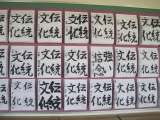 伝統
文化
伝統
文化
伝統
文化
伝統
文化
伝統
文化
伝統
文化
伝統
文化
伝統
文化
伝統
文化
伝統
文化
伝統
文化
伝統
文化
伝統
文化
伝統
文化
伝統
文化
伝統
文化
伝統
文化
伝統
文化